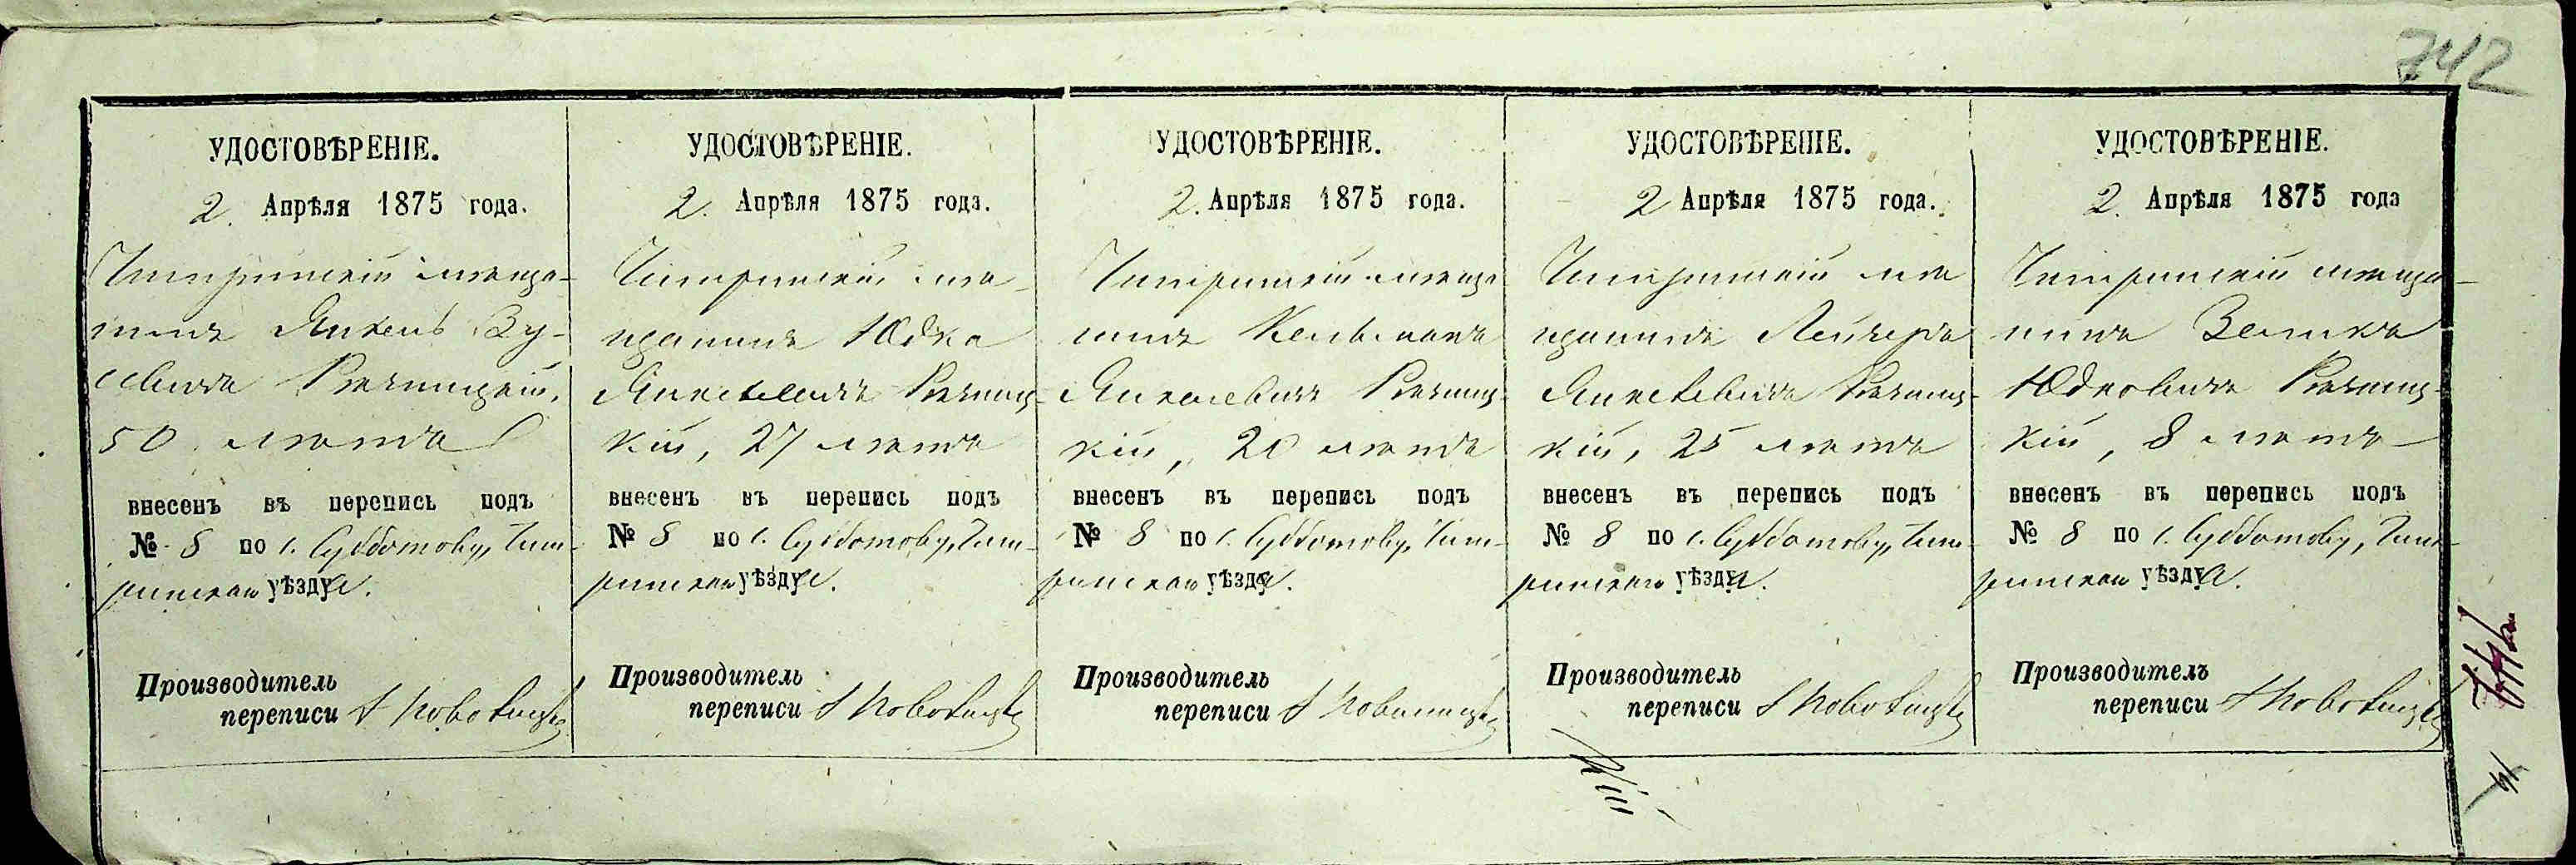 742
УДОСТОВѢРЕНІЕ.
2. Апрѣля 1875 года.
Чигиринскій мѣща-
нинъ Янкель Зу-
севичъ Речицкій,
50 лѣтъ
внесенъ въ перепись подъ
№ 8 по с. Субботову, Чиги-
ринскаго уѣзда.
Производитель
переписи
УДОСТОВѢРЕНІЕ.
2. Апрѣля 1875 года.
Чигиринскій мѣ-
щанинъ Юдко
Янкелевичъ Речиц-
кій, 27 лѣтъ
внесенъ въ перепись подъ
№ 8 по с. Субботову, Чиги-
ринскаго уѣзда.
Производитель
переписи
УДОСТОВѢРЕНІЕ.
2. Апрѣля 1875 года.
Чигиринскій мѣща
нинъ Кельманъ
Янкелевичъ Речиц-
кій, 20 лѣтъ
внесенъ въ перепись подъ
№ 8 по с. Субботову, Чиги-
ринскаго уѣзда.
Производитель
переписи
УДОСТОВѢРЕНІЕ.
2 Апрѣля 1875 года.
Чигиринскій мѣ
щанинъ Лейзеръ
Янкелевичъ Речиц-
кій, 25 лѣтъ
внесенъ въ перепись подъ
№ 8 по с. Субботову, Чиги-
ринскаго уѣзда.
Производитель
переписи
УДОСТОВѢРЕНІЕ.
2. Апрѣля 1875 года
Чигиринскій мѣща-
нинъ Зелика
Юдковичъ Речиц-
кій, 8 лѣтъ
внесенъ въ перепись подъ
№ 8 по с. Субботову, Чиги-
ринскаго уѣзда.
Производитель
переписи
кій